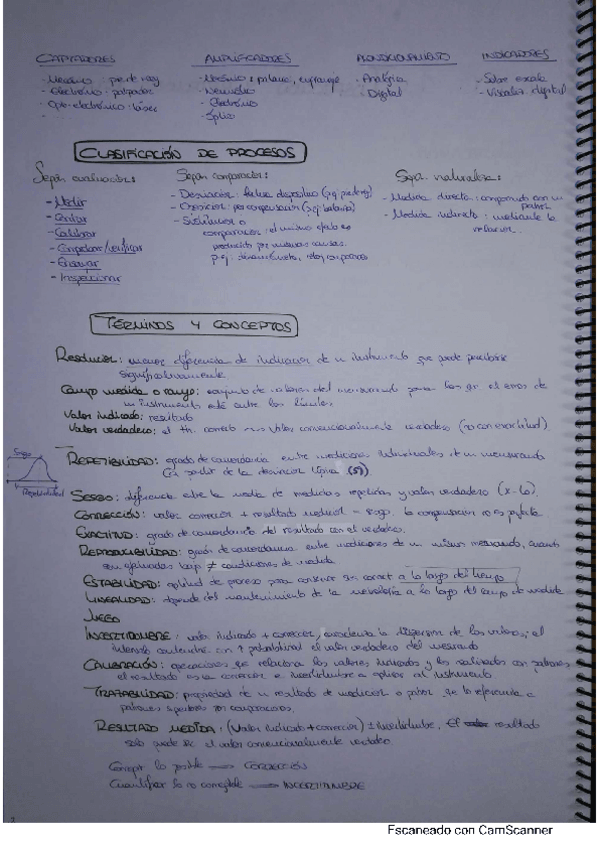 CAPTADORES AMPLIFICADORES ACONDICIONAMIENTO INDICADORES
- Mecánico: - Mecánico: palanca, engranaje - Analógica - Sobre escala
- Electrónico: palpador - Neumático - Digital - Visualiz. digital
- Opto-electrónico: láser - Electrónico
- Óptico
CLASIFICACIÓN DE PROCESOS
Según evaluación: Según comparación: Según naturaleza:
- Medir - Desviación: - Medida directa: comparando con un patrón
- Contar - Oposición: por compensación (p.ej. balanza) - Medida indirecta: mediante la relación.
- Calibrar - Sustitución o
- Comprobar/verificar comparación: el mismo efecto es
- Ensayar producido por mismas causas.
- Inspeccionar p.ej:
TÉRMINOS Y CONCEPTOS
Resolución: menor diferencia de indicación de un instrumento que puede percibirse
significativamente
Campo medida o rango: conjunto de valores del mensurando para los que el error de
un instrumento está entre los límites.
Valor indicado: resultado
Valor verdadero: el th. correcto Valor convencionalmente verdadero (no con exactitud).
Sesgo
Repetibilidad
REPETIBILIDAD: grado de concordancia entre mediciones individuales de un mensurando
a partir de la desviación típica (S)
SESGO: diferencia entre la media de medidas repetidas y valor verdadero
CORRECCIÓN: valor corrección + resultado medición = sesgo. la compensación no es perfecta
EXACTITUD: grado de concordancia del resultado con el verdadero.
REPRODUCIBILIDAD: grado de concordancia entre mediciones de un mismo mensurando, cuando
son efectuadas bajo ≠ condiciones de medida
ESTABILIDAD: aptitud de proceso para conservar sus caract a lo largo del tiempo
LINEALIDAD: depende del mantenimiento de la a lo largo del campo de medida
JUEGO
INCERTIDUMBRE: valor indicado + corrección, caracteriza la dispersión de los valores; el
intervalo contendrá con ↑ probabilidad el valor verdadero del mesurando
CALIBRACIÓN: operaciones que relaciona los valores indicados y los realizados con patrones
el resultado es la corrección e incertidumbre a aplicar al instrumento
TRAZABILIDAD: propiedad de un resultado de medición o patrón que lo referencia a
patrones superiores por comparaciones.
RESULTADO MEDIDA: (Valor indicado + corrección) ± incertidumbre. El resultado
solo puede ser el valor convencionalmente verdadero
Corregir lo posible → CORRECCIÓN
Cuantificar lo no corregible → INCERTIDUMBRE
Escaneado con CamScanner